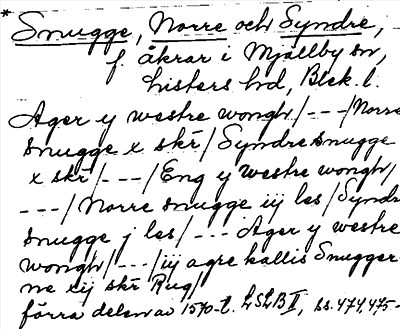 * Snugge, Norre och Syndre,
f. åkrar i Mjällby sn,
Listers hd, Blek. l.
Ager y westre wongh/---/Norre
snugge x skr/Syndre snugge
x skr/---/Eng y westre wongh/
---/Norre snugge iij les/Syndr
snugge j les/--- Ager y westre
wongh/---/iij agre kallis Snugger-
ne xij skr Rug/
förra delen av 1570-t. LSLB II, ss. 474, 475-